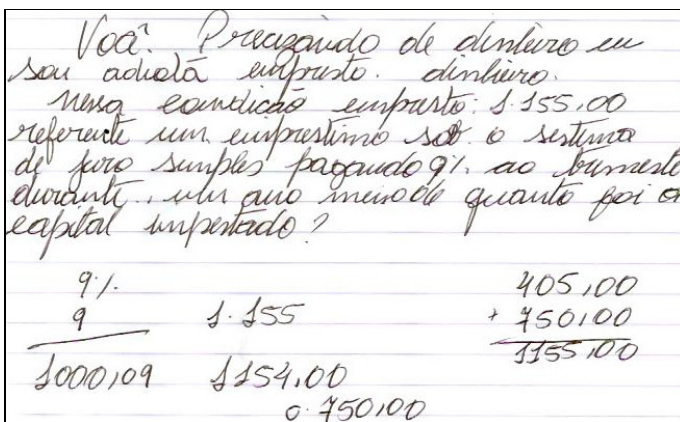 Você? Precizando de dinheiro eu
sou adiotá empresto. dinheiro.
nessa condicão empresto: 1.155,00
referente um emprestimo sob o sistema
de juro simples pagando 9% ao bimestre
durante. um ano meio de quanto foi o
capital impestado?
9%. 405,00
9 1.155 + 750,00
1000,09 1154,00 1155,00
0.750,00